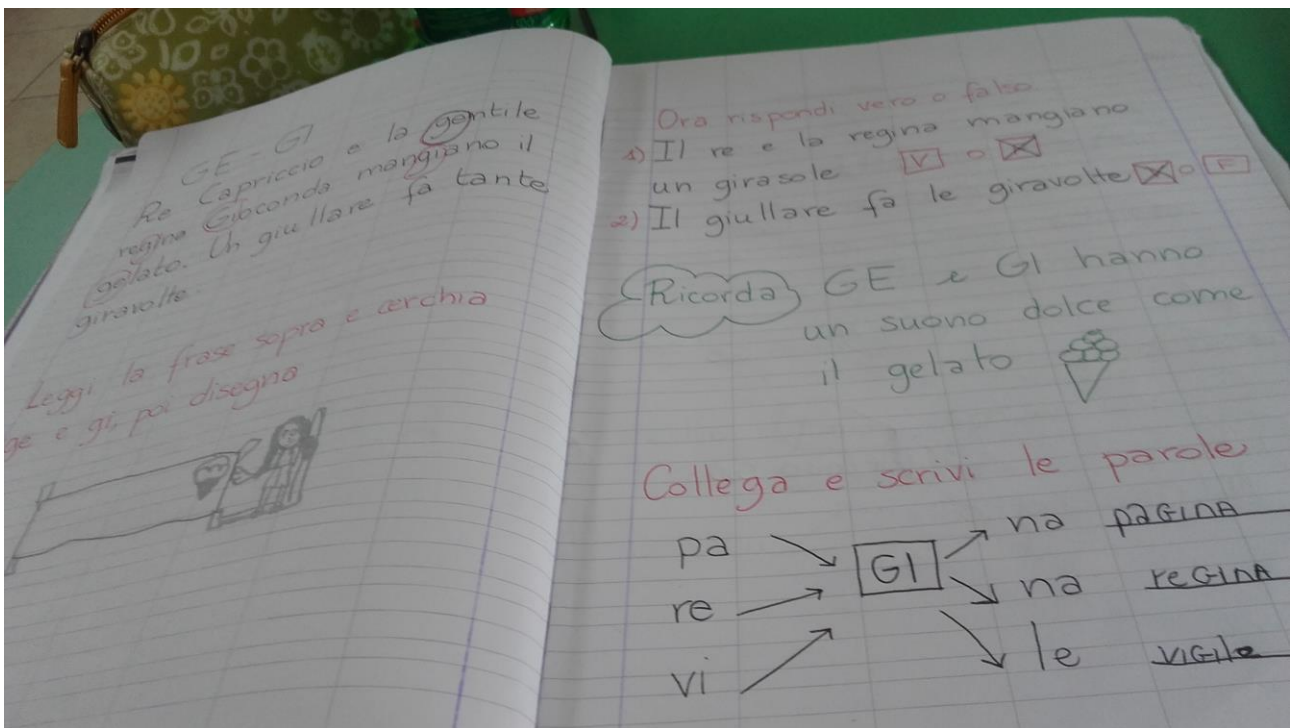 GE - GI
Re Capriccio e la gentile
regina Gioconda mangiano il
gelato. Un giullare fa tante
giravolte.
Leggi la frase sopra e cerchia
ge e gi, poi disegna
Ora rispondi vero o falso
1) Il re e la regina mangiano
un girasole V o X
2) Il giullare fa le giravolte X o F
Ricorda GE e GI hanno
un suono dolce come
il gelato
Collega e scrivi le parole
pa GI na paGINA
re na reGINA
vi le viGile